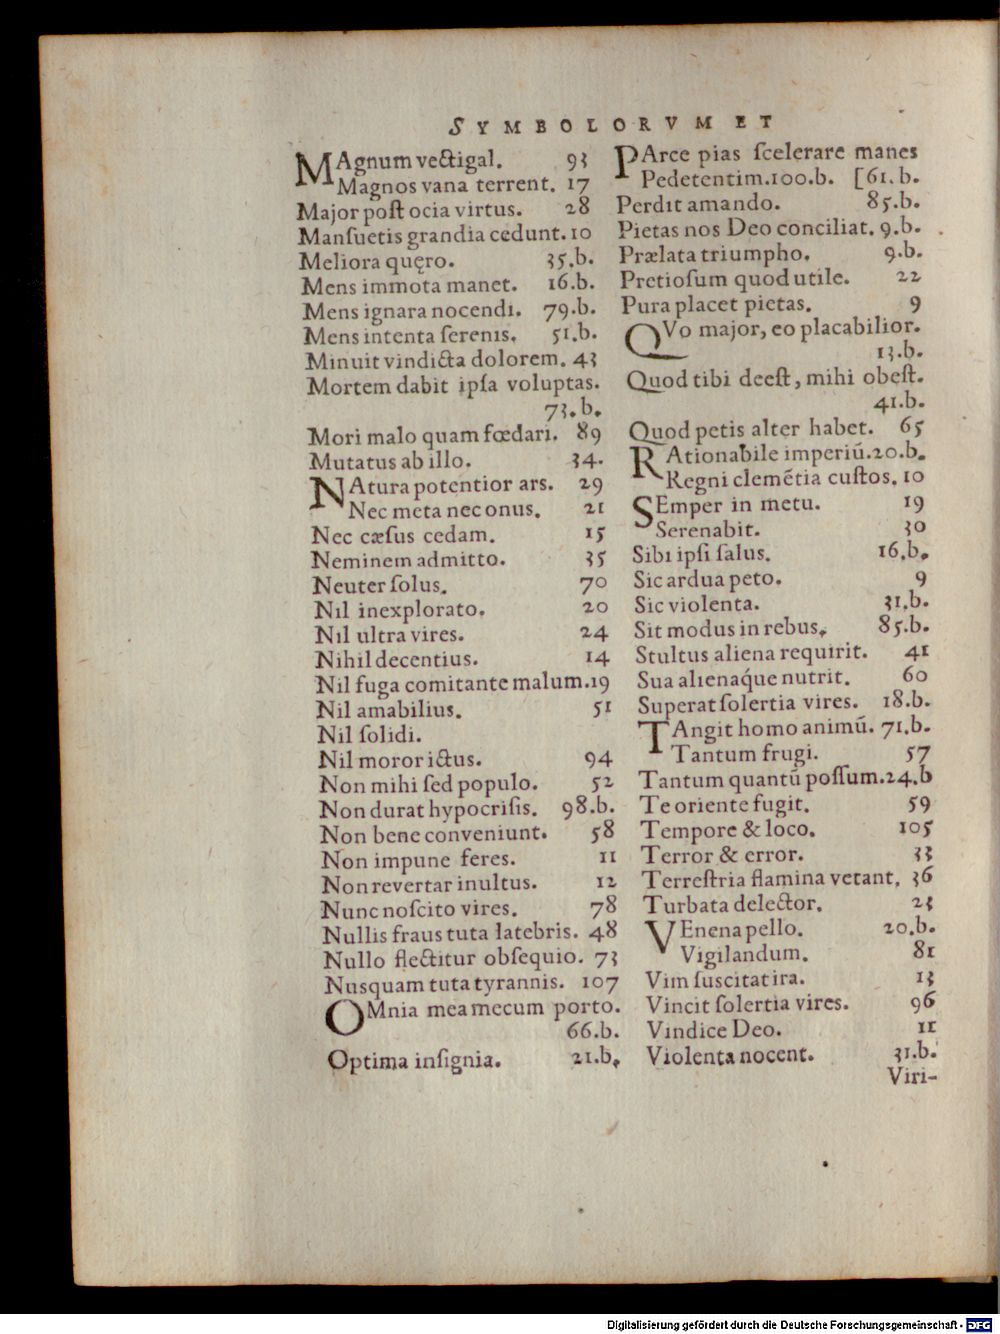 SYMBOLORVM ET
MAgnum vectigal. 93
Magnos vana terrent. 17
Major post ocia virtus. 28
Manſuetis grandia cedunt. 10
Meliora quęro. 35.b.
Mens immota manet. 16.b.
Mens ignara nocendi. 79.b.
Mens intenta ſerenis. 51.b.
Minuit vindicta dolorem. 43
Mortem dabit ipſa voluptas.
73.b.
Mori malo quam fœdari. 89
Mutatus ab illo. 34.
NAtura potentior ars. 29
Nec meta nec onus. 21
Nec cæſus cedam. 15
Neminem admitto. 35
Neuter ſolus. 70
Nil inexplorato. 20
Nil ultra vires. 24
Nihil decentius. 14
Nil fuga comitante malum. 19
Nil amabilius. 51
Nil ſolidi.
Nil moror ictus. 94
Non mihi ſed populo. 52
Non durat hypocriſis. 98.b.
Non bene conveniunt. 58
Non impune feres. 11
Non revertar inultus. 12
Nunc noſcito vires. 78
Nullis fraus tuta latebris. 48
Nullo flectitur obſequio. 73
Nusquam tuta tyrannis. 107
OMnia mea mecum porto.
66.b.
Optima inſignia. 21.b.
PArce pias ſcelerare manes
Pedetentim. 100.b. [61.b.
Perdit amando. 85.b.
Pietas nos Deo conciliat. 9.b.
Prælata triumpho. 9.b.
Pretioſum quod utile. 22
Pura placet pietas. 9
QVo major, eo placabilior.
13.b.
Quod tibi deeſt, mihi obeſt.
41.b.
Quod petis alter habet. 65
RAtionabile imperiũ. 20.b.
Regni clemẽtia cuſtos. 10
SEmper in metu. 19
Serenabit. 30
Sibi ipſi ſalus. 16.b.
Sic ardua peto. 9
Sic violenta. 31.b.
Sit modus in rebus. 85.b.
Stultus aliena requirit. 41
Sua alienaq́ue nutrit. 60
Superat ſolertia vires. 18.b.
TAngit homo animũ. 71.b.
Tantum frugi. 57
Tantum quantũ poſſum. 24.b
Te oriente fugit. 59
Tempore & loco. 105
Terror & error. 33
Terreſtria flamina vetant. 36
Turbata delector. 23
VEnena pello. 20.b.
Vigilandum. 81
Vim ſuscitat ira. 13
Vincit ſolertia vires. 96
Vindice Deo. 11
Violenta nocent. 31.b.
Viri-
Digitalisierung gefördert durch die Deutsche Forschungsgemeinschaft - DFG